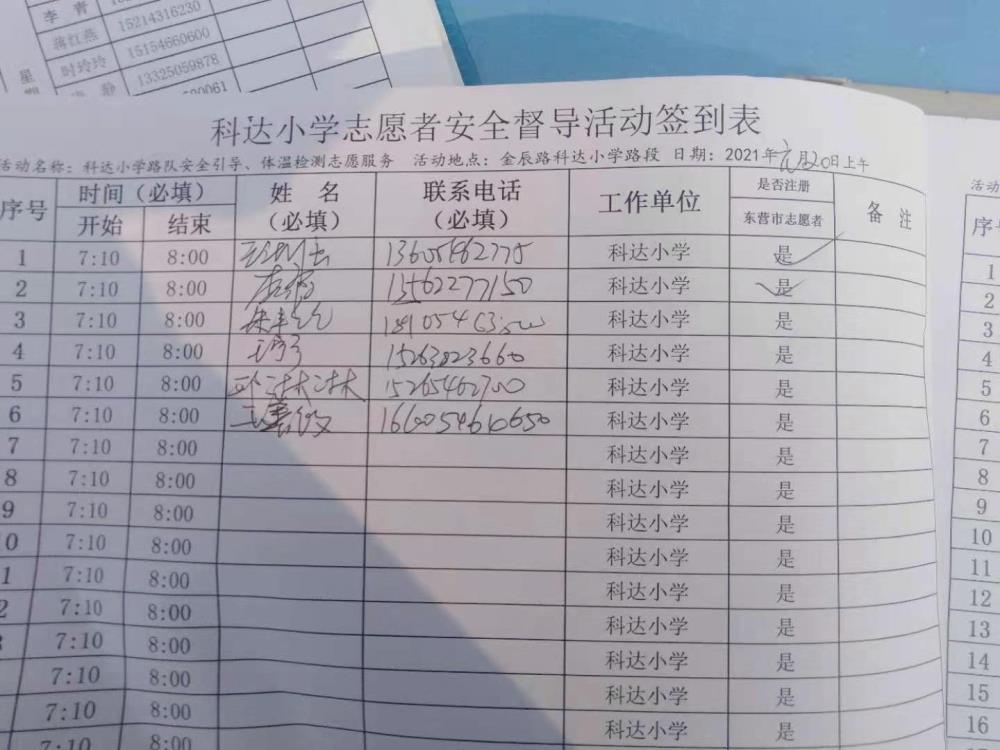 李青
蒋红燕 15214316230
时玲玲 15154660600
静 13325059878
星期
科达小学志愿者安全督导活动签到表
活动名称：科达小学路队安全引导、体温检测志愿服务 活动地点：金辰路科达小学路段 日期：2021年 月20日上午
序号 时间（必填） 姓 名（必填） 联系电话（必填） 工作单位 是否注册东营市志愿者 备 注
开始 结束
1 7:10 8:00 13605462775 科达小学 是
2 7:10 8:00 13562277150 科达小学 是
3 7:10 8:00 科达小学 是
4 7:10 8:00 15263823660 科达小学 是
5 7:10 8:00 孙琳琳 15265462700 科达小学 是
6 7:10 8:00 科达小学 是
7 7:10 8:00 科达小学 是
8 7:10 8:00 科达小学 是
9 7:10 8:00 科达小学 是
0 7:10 8:00 科达小学 是
1 7:10 8:00 科达小学 是
2 7:10 8:00 科达小学 是
7:10 8:00 科达小学 是
7:10 8:00 科达小学 是
7:10 8:00 科达小学 是
7:10 8:00 科达小学 是
活动
序号
1
2
3
4
5
6
7
8
9
10
11
12
13
14
15
16